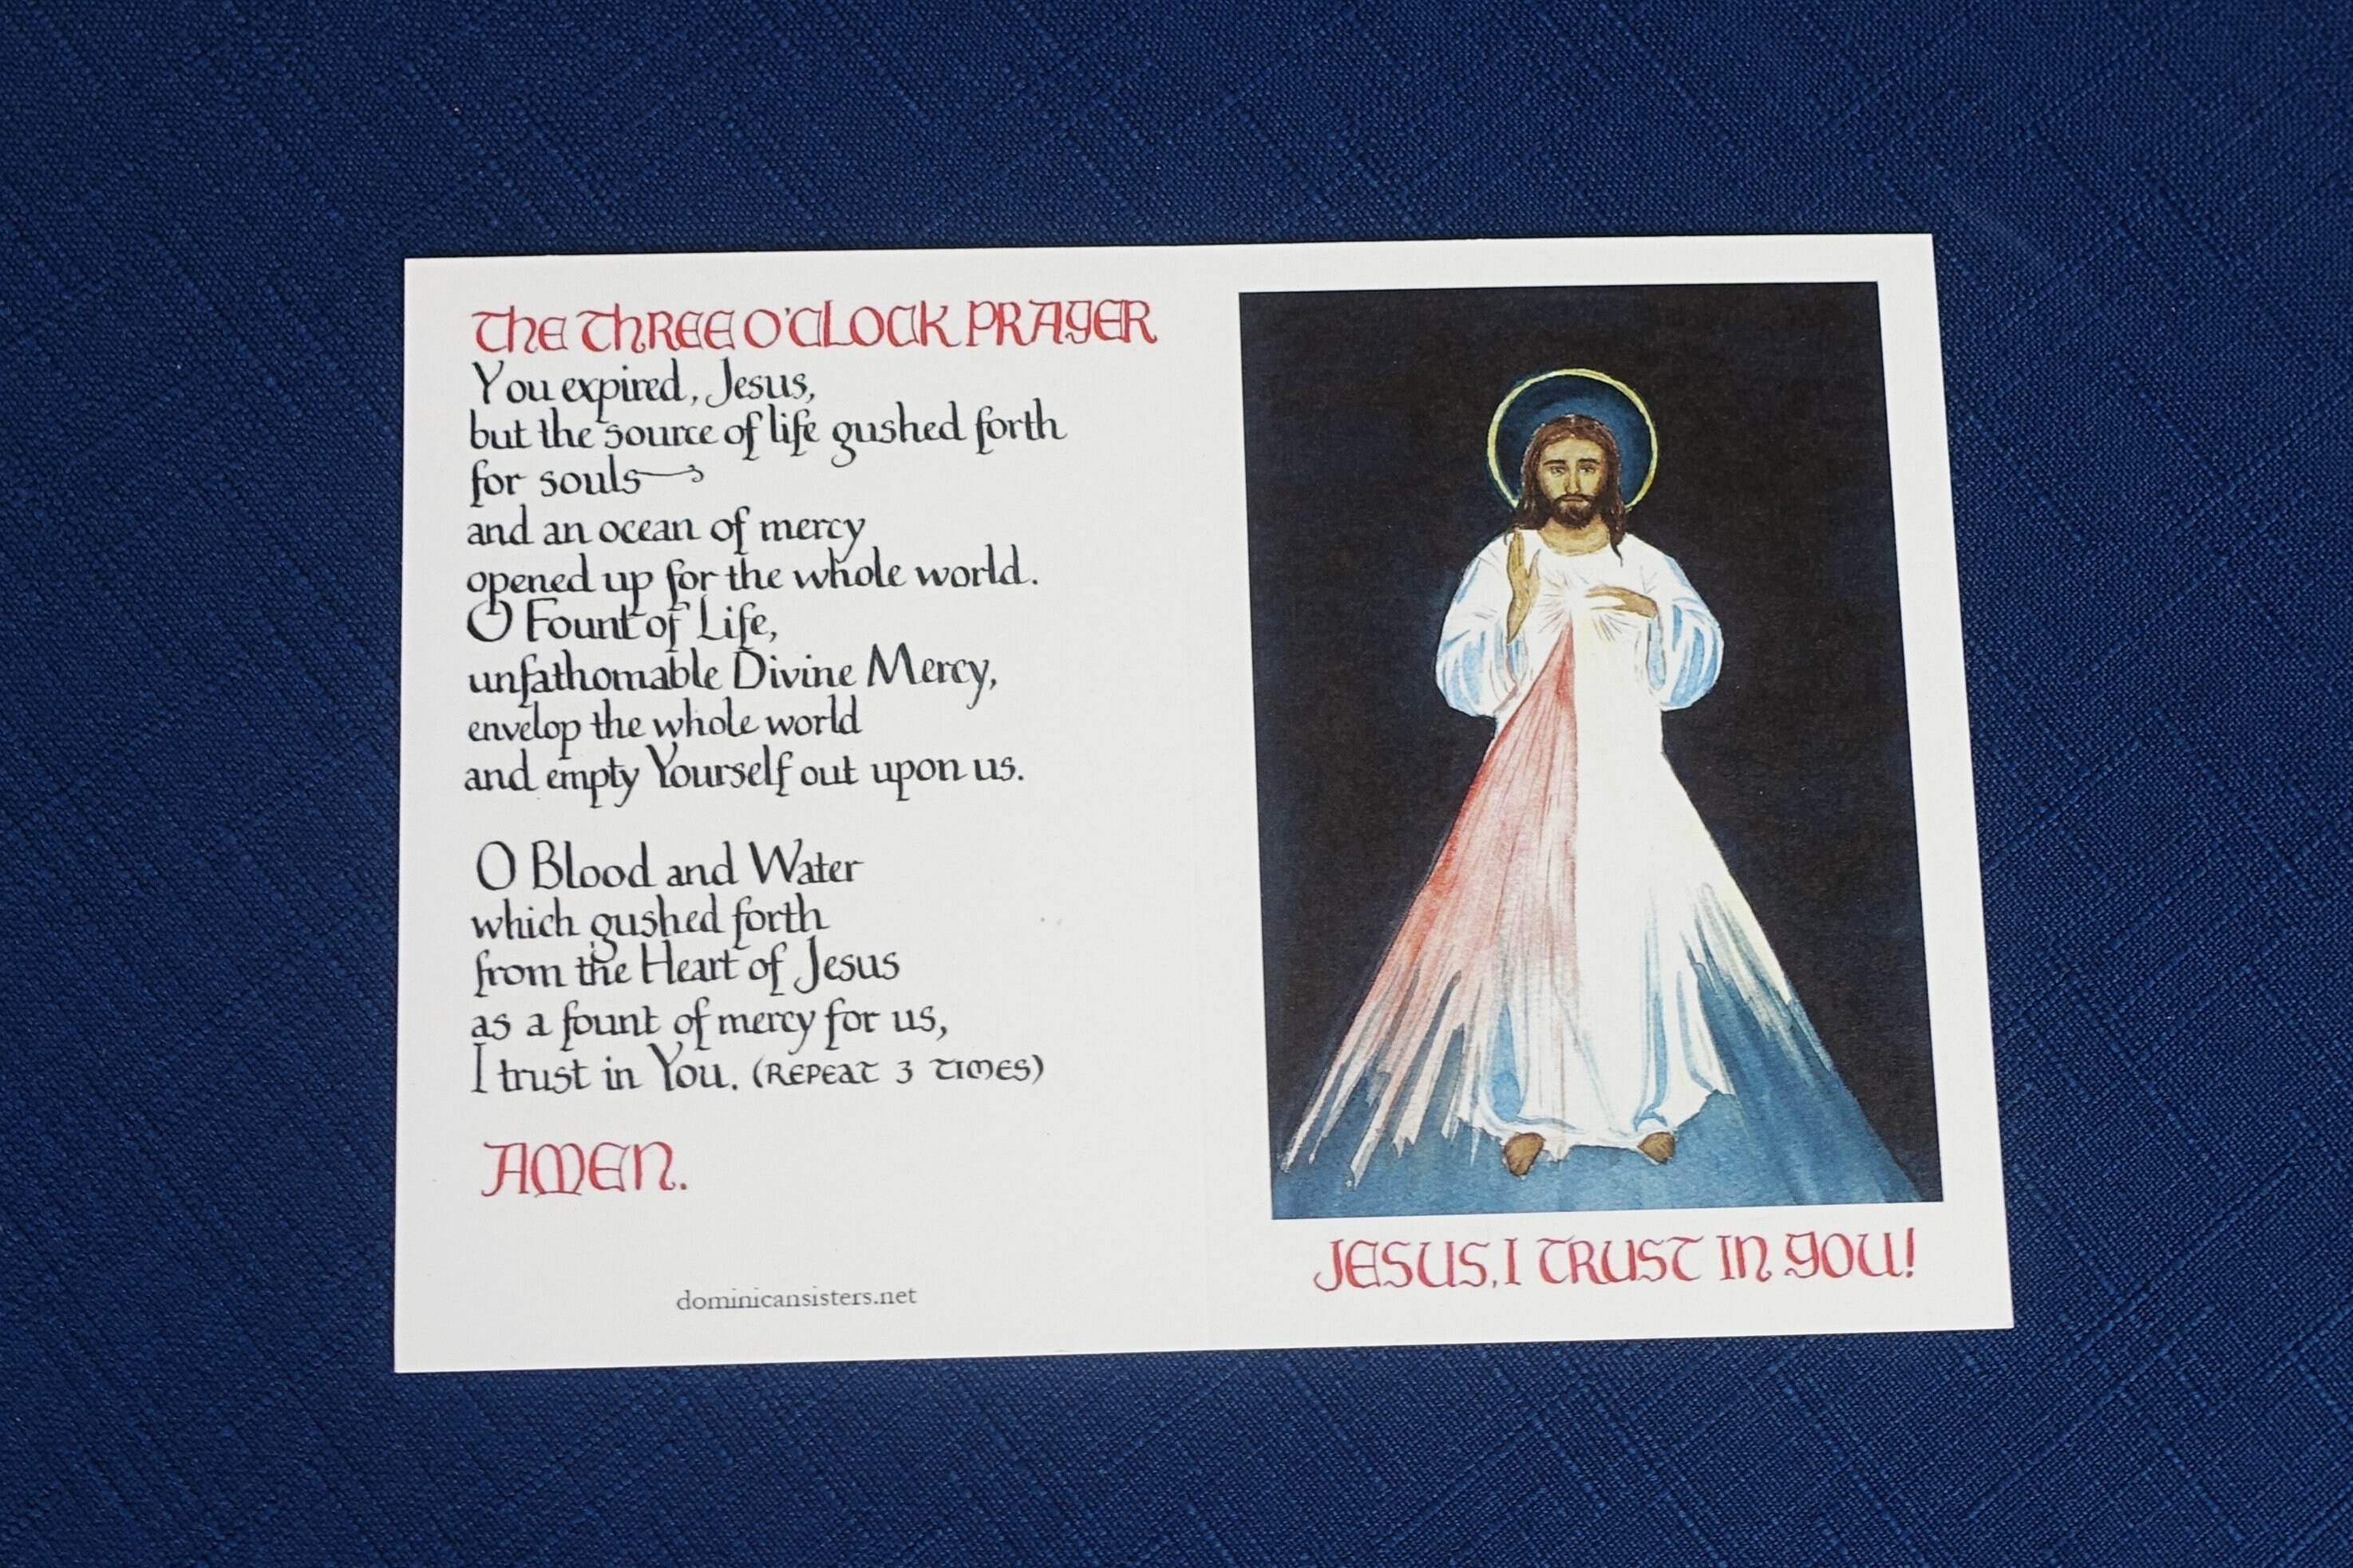 The Three O'Clock Prayer
You expired, Jesus,
but the source of life gushed forth
for souls
and an ocean of mercy
opened up for the whole world.
O Fount of Life,
unfathomable Divine Mercy,
envelop the whole world
and empty Yourself out upon us.
O Blood and Water
which gushed forth
from the Heart of Jesus
as a fount of mercy for us,
I trust in You. (REPEAT 3 TIMES)
AMEN.
dominicansisters.net
JESUS, I TRUST IN YOU!